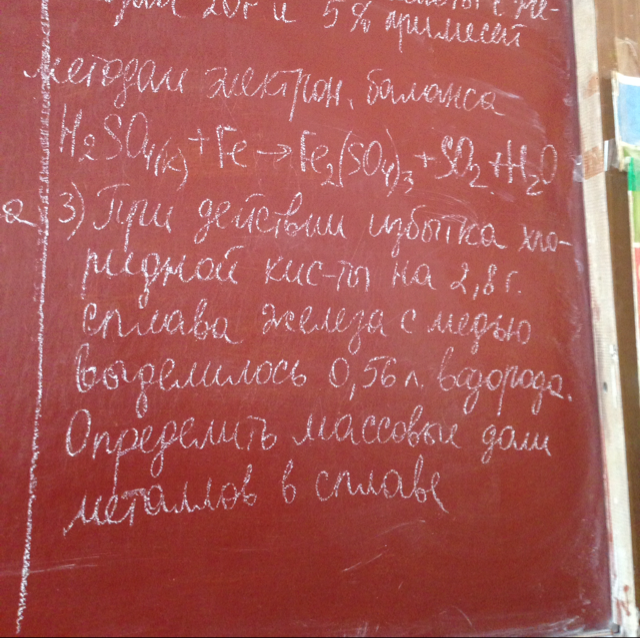 20г и 5% примесей
методом электрон. баланса
H₂SO₄(к) + Fe → Fe₂(SO₄)₃ + SO₂ + H₂O
3) При действии избытка хло-
ридной кис-ты на 2,8 г.
сплава железа с медью
выделилось 0,56 л. водорода.
Определить массовые доли
металлов в сплаве